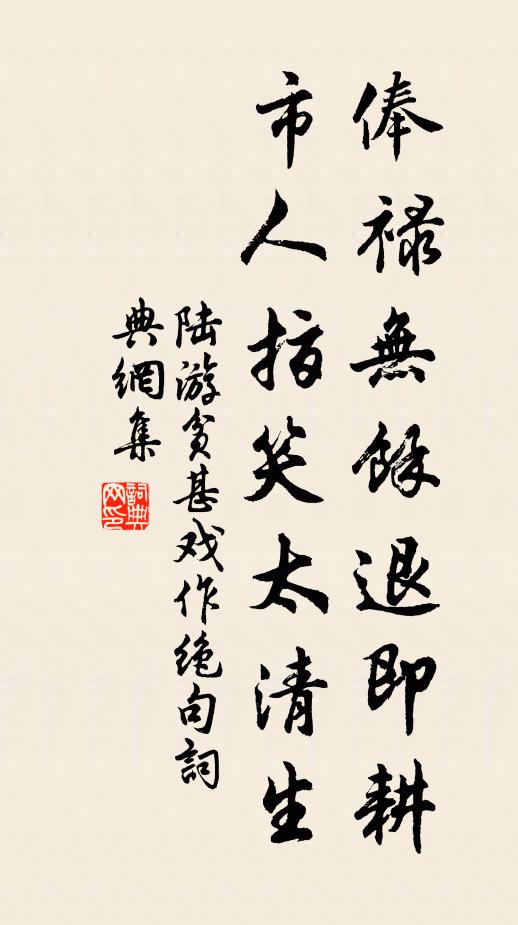 俸禄無餘退即耕
市人指笑太清生
陆游贫甚戏作绝句詞
典網集
詞典
网印